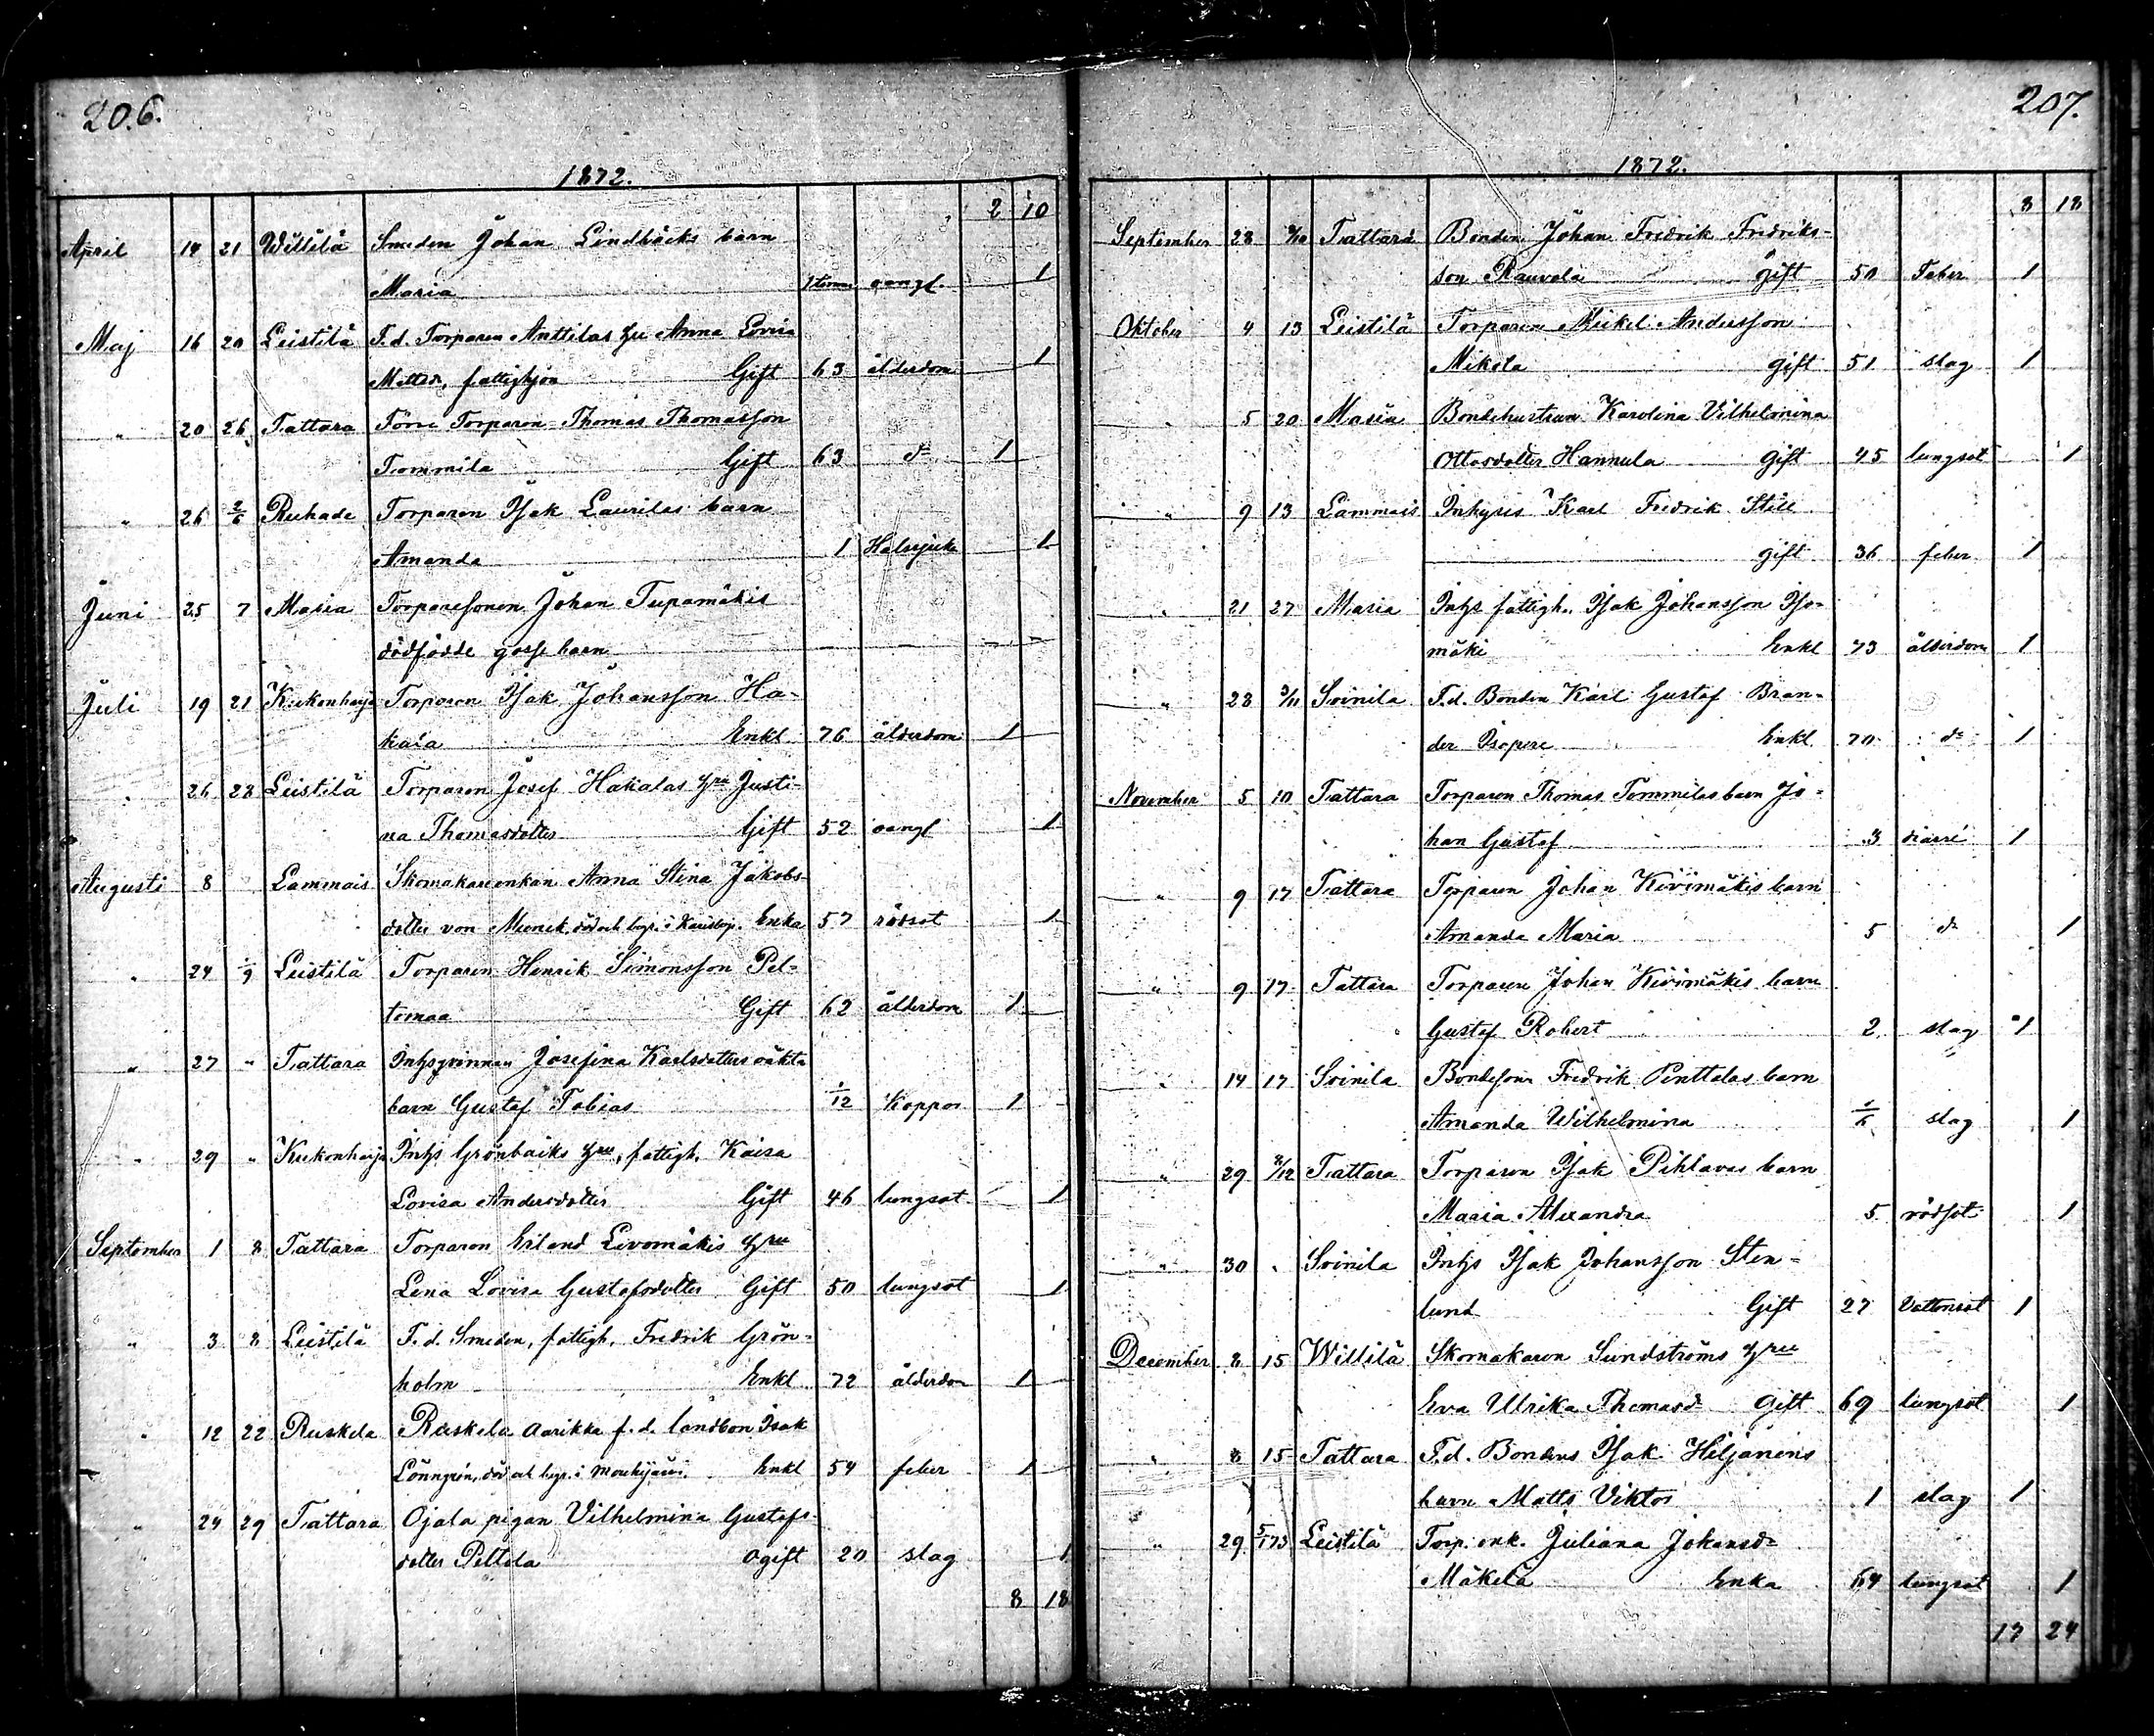 206.
1872.
2 10
April 14 21 Willilä Smeden Johan Lindbäcks barn
Maria 1 timme oangf. 1
Maj 16 20 Leistilä F.d. Torparen Anttilas hu Anna Lovisa
Mattsd., fattighjon Gift 63 ålderdom 1
" 20 26 Tattara Förre Torparen Thomas Thomasson
Tommila Gift 63 do 1
" 26 2/6 Ruhade Torparen Isak Laurilas barn
Amanda 1 Halssjuka 1
Juni 25 7 Masia Torparesonen Johan Tupamäkis
dödfödde gosse barn
Juli 19 21 Kukonharja Torparen Isak Johansson Ha-
kala Enkl 76 ålderdom 1
" 26 28 Leistilä Torparen Josef Hakalas hru Justi-
na Thomasdotter Gift 52 oangf 1
Augusti 8 Lammais Skomakareenkan Anna Stina Jakobs-
dotter von Munck, död och begr. i Karisloj. Enka 57 rödsot 1
" 24 1/9 Leistilä Torparen Henrik Simonsson Pel-
tomaa Gift 62 ålderdom 1
" 27 " Tattara Inhysqvinnan Josefina Karlsdotters oäkta
barn Gustaf Tobias 1/12 Koppor 1
" 29 " Kukonharja Inhys Grönbäcks hru, fattigh. Kaisa
Lovisa Andersdotter Gift 46 lungsot 1
September 1 8 Tattara Torparen Erland Livomäkis hru
Lena Lovisa Gustafsdotter Gift 50 lungsot 1
" 3 8 Leistilä F.d. Smeden, fattigh. Fredrik Grön-
holm Enkl 72 ålderdom 1
" 12 22 Ruskela Ruskela Aarikka f.d. landbon Isak
Lönngren, död och begr. i Mouhijärvi. Enkl 54 feber 1
" 24 29 Tattara Ojala pigan Vilhelmina Gustafs-
dotter Pettola ogift 20 slag 1
8 18
207.
1872.
8 18
September 28 Tattara Bonden Johan Fredrik Fredriks-
son Rauvola Gift 50 Feber 1
Oktober 4 13 Leistilä Torparen Mickel Andersson
Mikola gift 51 slag 1
" 5 20 Masia Bondehustrun Karolina Vilhelmina
Ottosdotter Hannula gift 45 lungsot 1
" 9 13 Lammais Inhyses Karl Fredrik Still
gift 36 feber 1
" 21 27 Masia Inhs fattigh. Isak Johansson Iso-
mäki Enkl 73 ålderdom 1
" 28 3/11 Soinila F.d. Bonden Karl Gustaf Bran-
der Isopere Enkl 70 do 1
November 5 10 Tattara Torparen Thomas Tommilas barn Jo-
han Gustaf 3 diarré 1
" 9 17 Tattara Torparen Johan Kivimäkis barn
Amanda Maria 5 do 1
" 9 17 Tattara Torparen Johan Kivimäkis barn
Gustaf Robert 2 slag 1
" 14 17 Soinila Bondesons Fredrik Penttalas barn
Amanda Wilhelmina 1/6 slag 1
" 29 8/12 Tattara Torparen Isak Pihlavas barn
Maria Alexandra 5 rödsot 1
" 30 " Soinila Inhs Isak Johansson Sten-
lund Gift 27 Vattensot 1
December 8 15 Willilä Skomakaren Sundströms hru
Eva Ulrika Thomasd Gift 69 lungsot 1
" 8 15 Tattara F.d. Bondens Isak Hiljanens
barn Matts Viktor 1 slag 1
" 29 5/1 73 Leistilä Torp. enk. Juliana Johansd-
Mäkelä Enka 64 lungsot 1
17 24